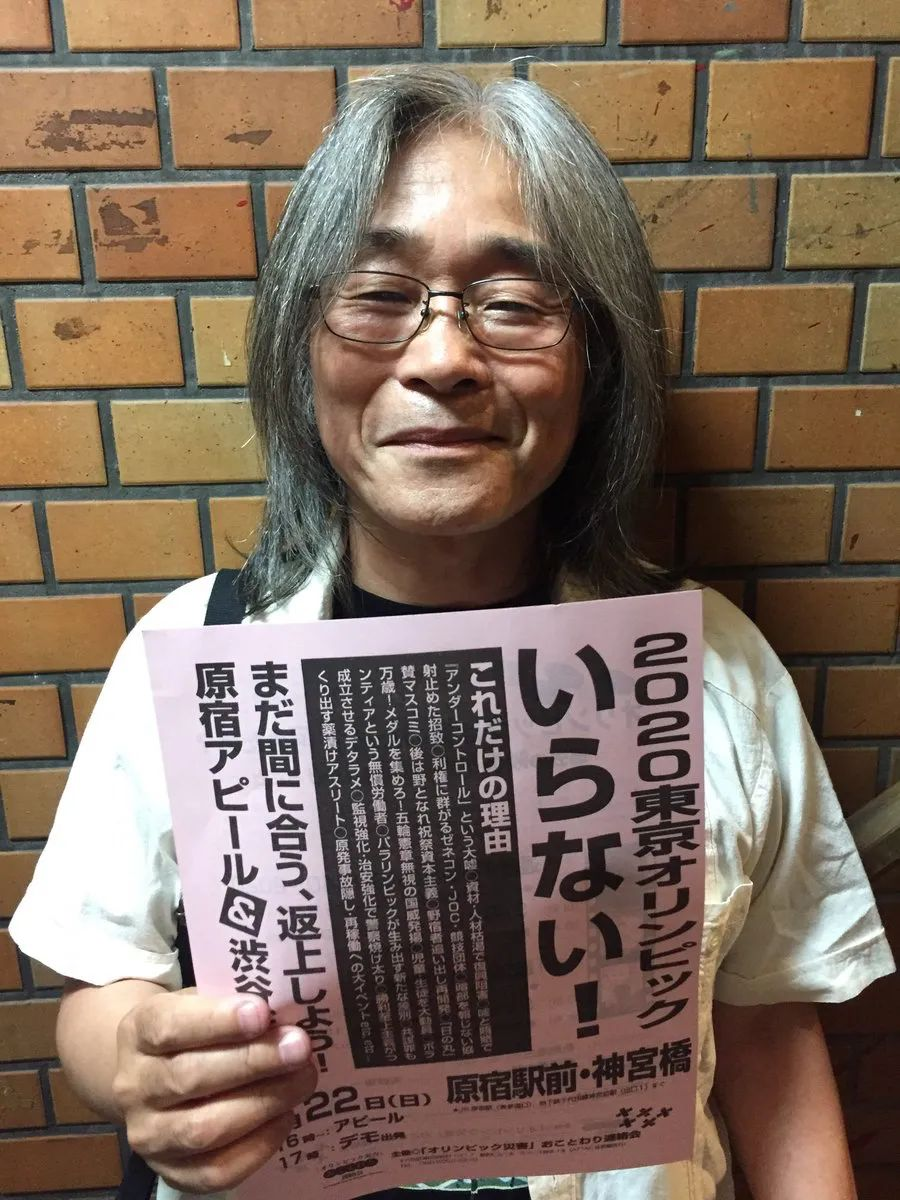 2020東京オリンピック
いらない!
これだけの理由
「アンダーコントロール」という大嘘◎資材・人材枯渇で復興阻害◎嘘と賄賂で
射止めた招致◎利権に群がるゼネコン・JOC・競技団体◎暗部を報じない協
賛マスコミ◎後は野となれ祝祭資本主義◎野宿者追い出し再開発◎「日の丸」
万歳!メダルを集めろ!五輪憲章無視の国威発揚◎児童・生徒を大動員◎「ボラ
ンティア」という無償労働者◎パラリンピックが生み出す新たな差別◎共謀罪も
成立させるデタラメ◎監視強化・治安強化で警察焼け太り◎勝利至上主義がつ
くり出す薬漬けアスリート◎原発事故隠し・再稼働への大イベント
まだ間に合う、返上しよう!
原宿アピール&渋谷
原宿駅前・神宮橋
22日(日)
アピール
17時 デモ出発
主催◎「オリンピック災害」おことわり連絡会